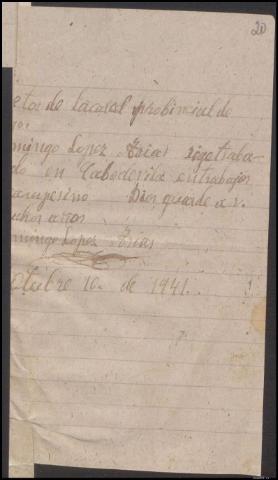 20
etor de lacarsel probincial de
mingo Lopez Arias sigetraba-
do en Taboderila en trabajos
campesino Dios guarde a v.
uchos años
omingo Lopez Arias
Octubre 10. de 1941.